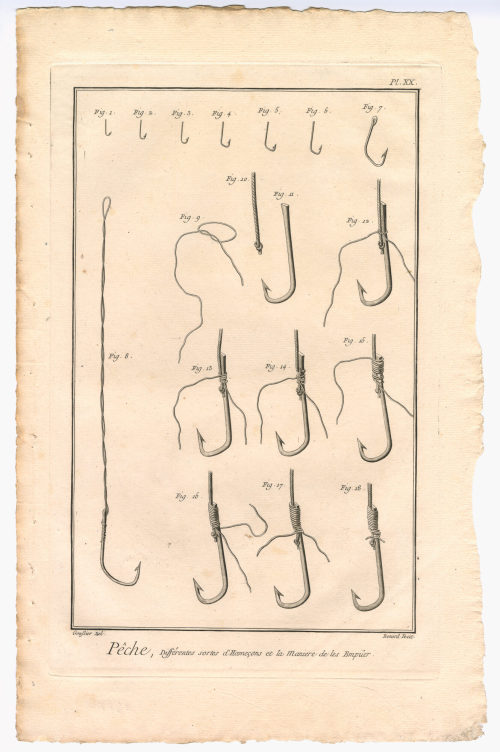 Pl. XX.
Fig. 1. Fig. 2. Fig. 3. Fig. 4. Fig. 5. Fig. 6. Fig. 7.
Fig. 10. Fig. 11.
Fig. 9 Fig. 12.
Fig. 8. Fig. 13. Fig. 14. Fig. 15.
Fig. 16 Fig. 17. Fig. 18.
Goussier Del. Benard Fecit.
Pêche, Différentes sortes d'Hameçons et la Maniere de les Empiler.